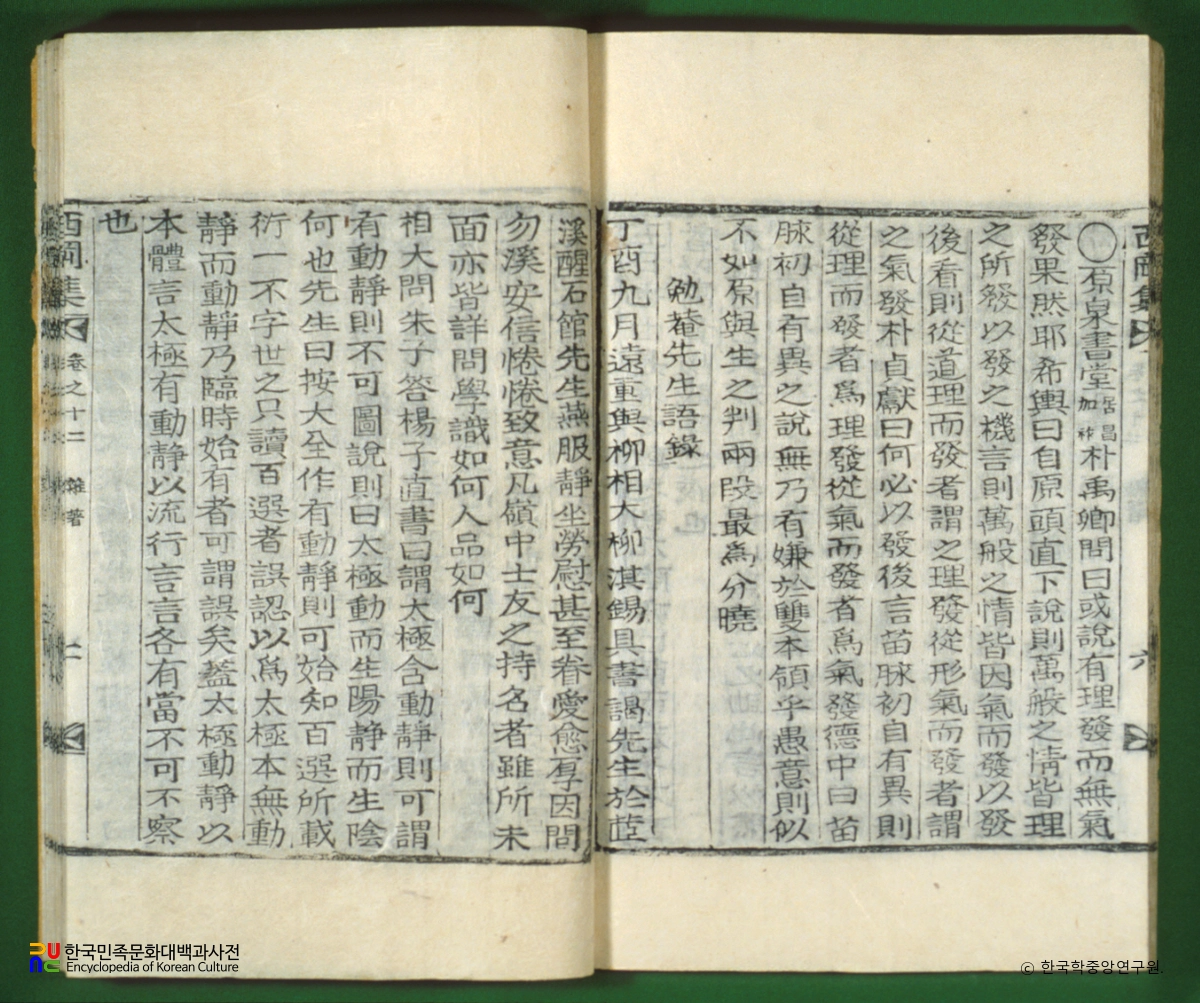 西岡集
六
〇原泉書堂居昌加祚朴禹卿問曰或說有理發而無氣
發果然耶希輿曰自原頭直下說則萬般之情皆理
之所發以發之機言則萬般之情皆因氣而發以發
後看則從道理而發者謂之理發從形氣而發者謂
之氣發朴貞獻曰何必以發後言苗脉初自有異則
從理而發者爲理發從氣而發者爲氣發德中曰苗
脉初自有異之說無乃有嫌於雙本領乎愚意則似
不如原與生之判兩段最爲分曉
勉菴先生語錄
丁酉九月遠重與柳相大柳淇錫具書謁先生於茝
溪醒石館先生燕服靜坐勞慰甚至眷愛愈厚因問
勿溪安信惓惓致意凡嶺中士友之持名者雖所未
面亦皆詳問學識如何人品如何
相大問朱子答楊子直書曰謂太極含動靜則可謂
有動靜則不可圖說則曰太極動而生陽靜而生陰
何也先生曰按大全作有動靜則可始知百選所載
衍一不字世之只讀百選者誤認以爲太極本無動
靜而動靜乃臨時始有者可謂誤矣蓋太極動靜以
本體言太極有動靜以流行言言各有當不可不察
也
西岡集 卷之十二 雜著
한국민족문화대백과사전
Encyclopedia of Korean Culture
© 한국학중앙연구원.